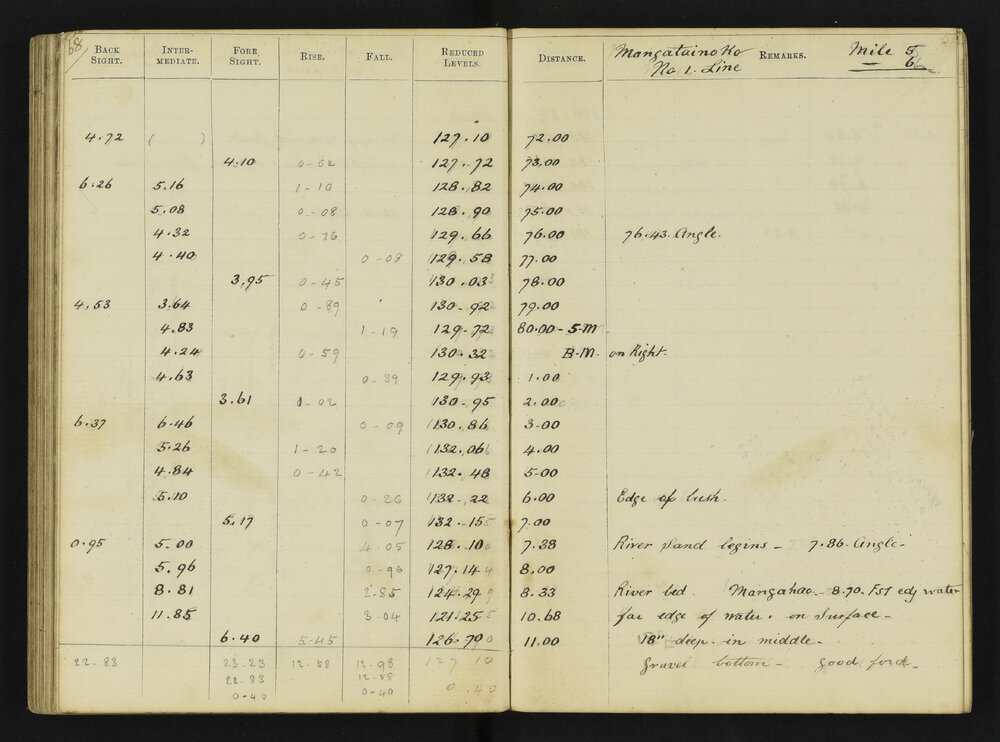 68
BACK SIGHT. INTER-MEDIATE. FORE SIGHT. RISE. FALL. REDUCED LEVELS. DISTANCE. Mangatainoko No 1. Line REMARKS. Mile 5/6
4.72 ( ) 127.10 72.00
4.10 0-62 127.72 73.00
6.26 5.16 1-10 128.82 74.00
5.08 0-08 128.90 75.00
4.32 0-76 129.66 76.00 76.43. Angle.
4.40 0-08 129.58 77.00
3.95 0-45 130.03 78.00
4.53 3.64 0-89 130.92 79.00
4.83 1-19 129.72 80.00-5.M
4.24 0-59 130.32 B.M. on Right.
4.63 0-39 129.93 1.00
3.61 1-02 130.95 2.00
6.37 6.46 0-09 130.86 3.00
5.26 1-20 132.06 4.00
4.84 0-42 132.48 5.00
5.10 0-26 132.22 6.00 Edge of bush.
5.17 0-07 132.15 7.00
0.95 5.00 4.05 128.10 7.38 River sand begins - 7.86. Angle-
5.96 0-96 127.14 8.00
8.81 2.85 124.29 8.33 River bed. Mangahao - 8.70. Fst edg water
11.85 3-04 121.25 10.68 far edge of water. on Surface-
6.40 5-45 126.70 11.00 18" deep. in middle-
22.83 23-23 12-58 12-98 127 10 Gravel bottom - good ford-
22-83 12-58 0.40
0-40 0-40